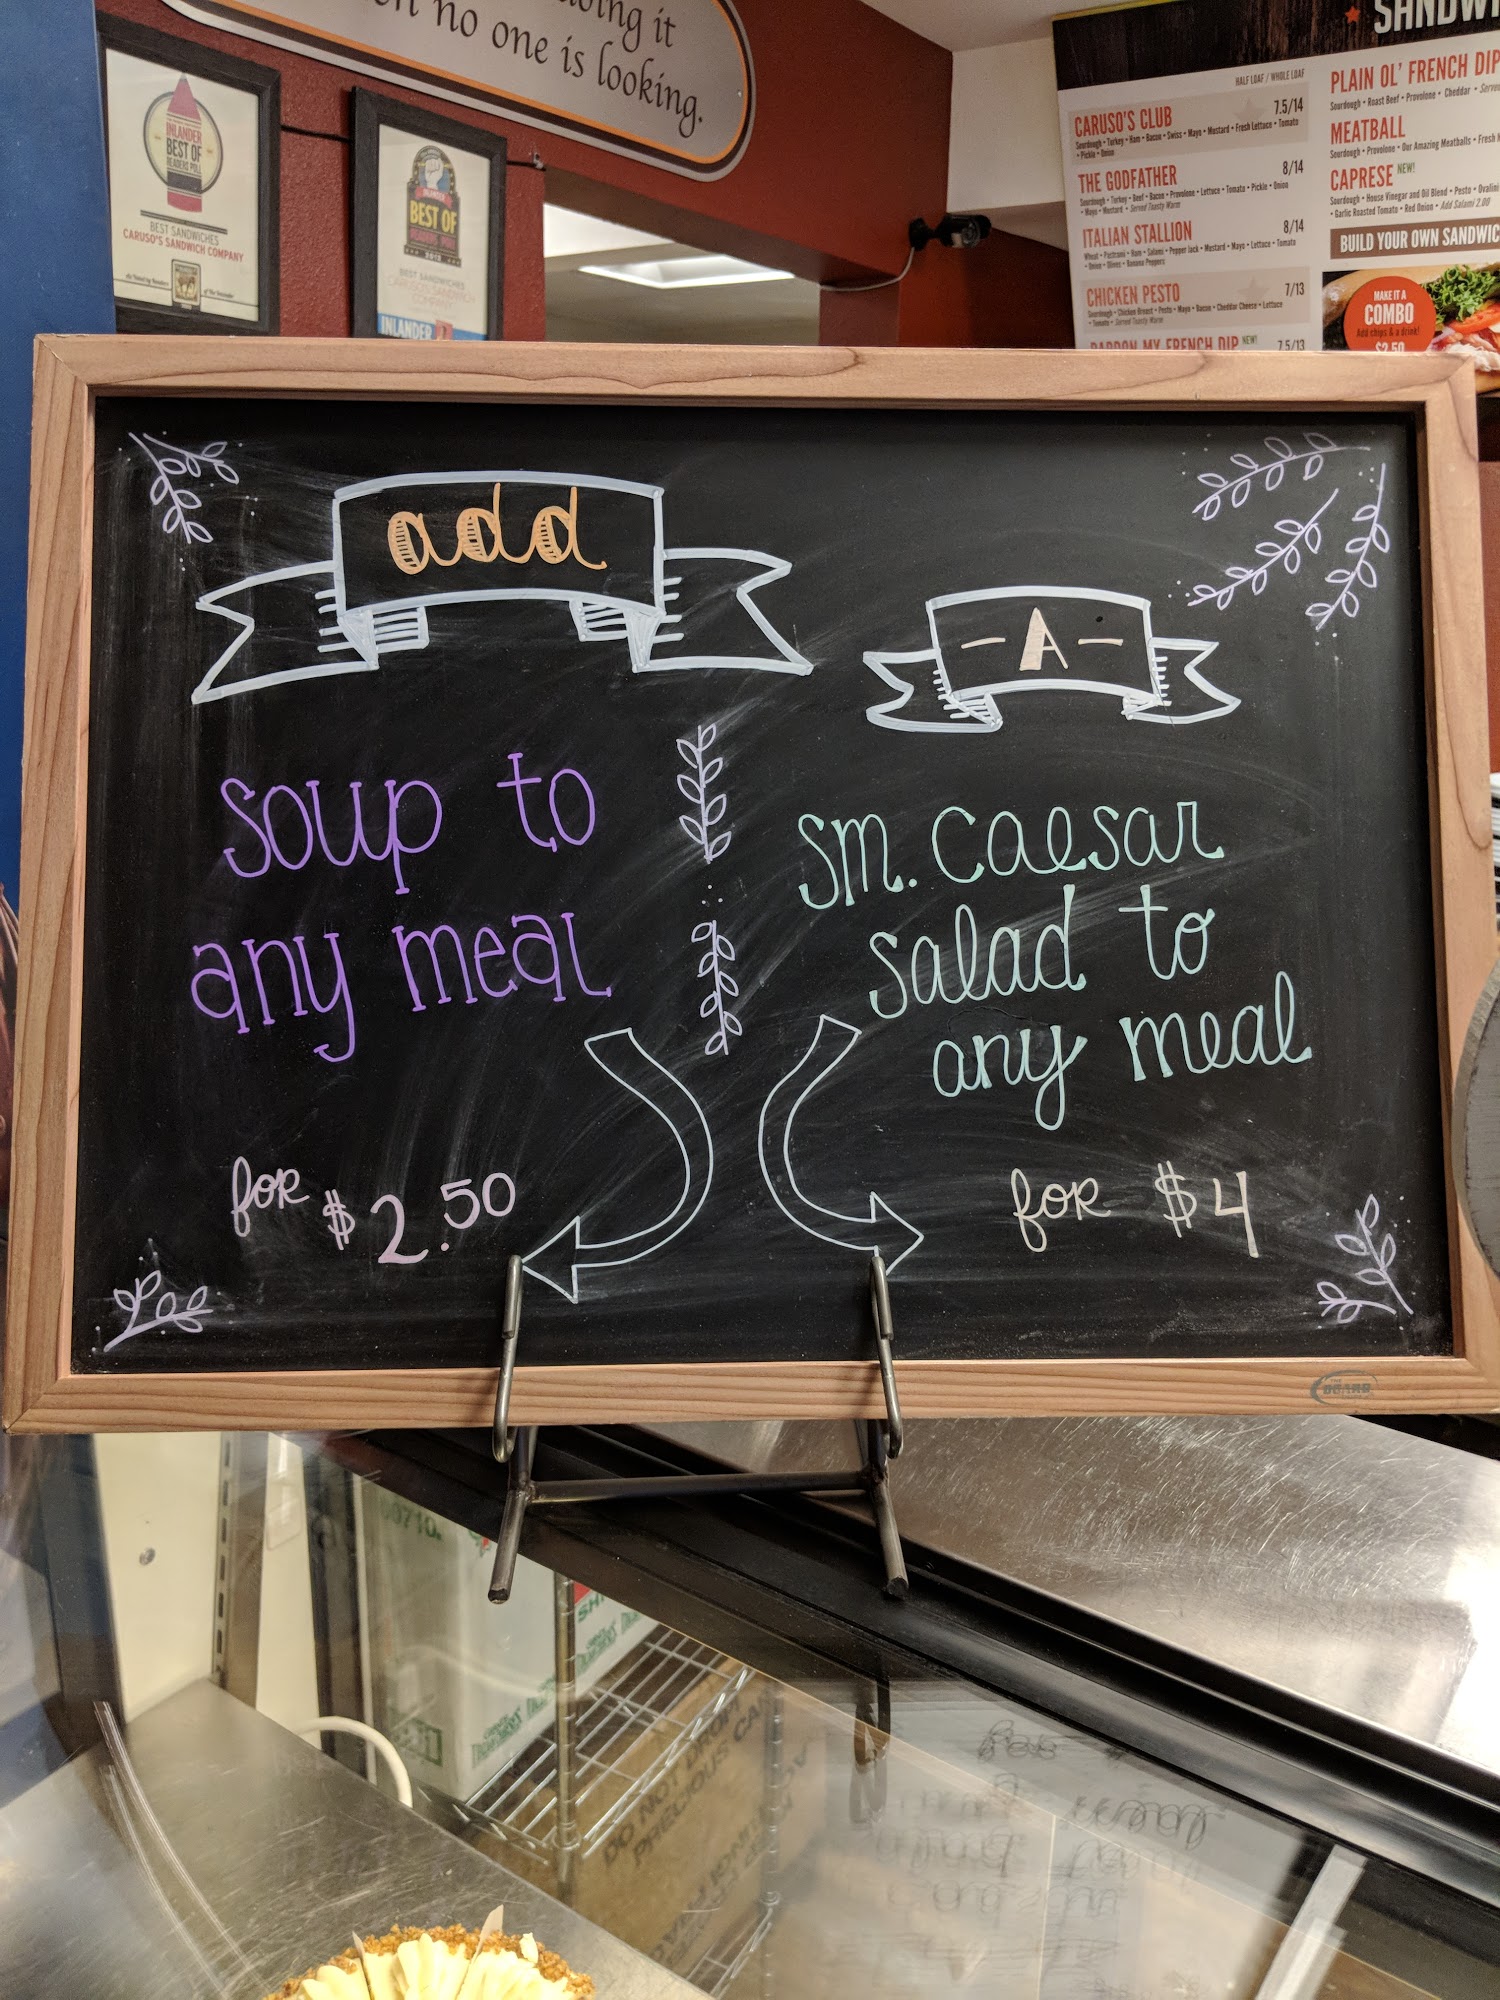 doing it
no one is looking.
INLANDER
BEST OF
READERS POLL
BEST SANDWICHES
CARUSO'S SANDWICH COMPANY
INLANDER
BEST OF
READERS POLL
BEST SANDWICHES
CARUSO'S SANDWICH
COMPANY
INLANDER
HALF LOAF / WHOLE LOAF
CARUSO'S CLUB 7.5/14
Sourdough • Turkey • Ham • Bacon • Swiss • Mayo • Mustard • Fresh Lettuce • Tomato
• Pickle • Onion
THE GODFATHER 8/14
Sourdough • Turkey • Beef • Bacon • Provolone • Lettuce • Tomato • Pickle • Onion
• Mayo • Mustard • Served Toasty Warm
ITALIAN STALLION 8/14
Wheat • Pastrami • Ham • Salami • Pepper Jack • Mustard • Mayo • Lettuce • Tomato
• Onion • Olives • Banana Peppers
CHICKEN PESTO 7/13
Sourdough • Chicken Breast • Pesto • Mayo • Bacon • Cheddar Cheese • Lettuce
• Tomato • Served Toasty Warm
PARDON MY FRENCH DIP NEW! 7.5/13
PLAIN OL' FRENCH DIP
Sourdough • Roast Beef • Provolone • Cheddar • Served
MEATBALL
Sourdough • Provolone • Our Amazing Meatballs • Fresh
CAPRESE NEW!
Sourdough • House Vinegar and Oil Blend • Pesto •
• Garlic Roasted Tomato • Red Onion • Add Salami 2.00
BUILD YOUR OWN
MAKE IT A
COMBO
Add chips & a drink!
$2.50
add
soup to
any meal
for $2.50
- A -
sm. caesar
salad to
any meal
for $4
BOARD
DO NOT DROP
PRECIOUS